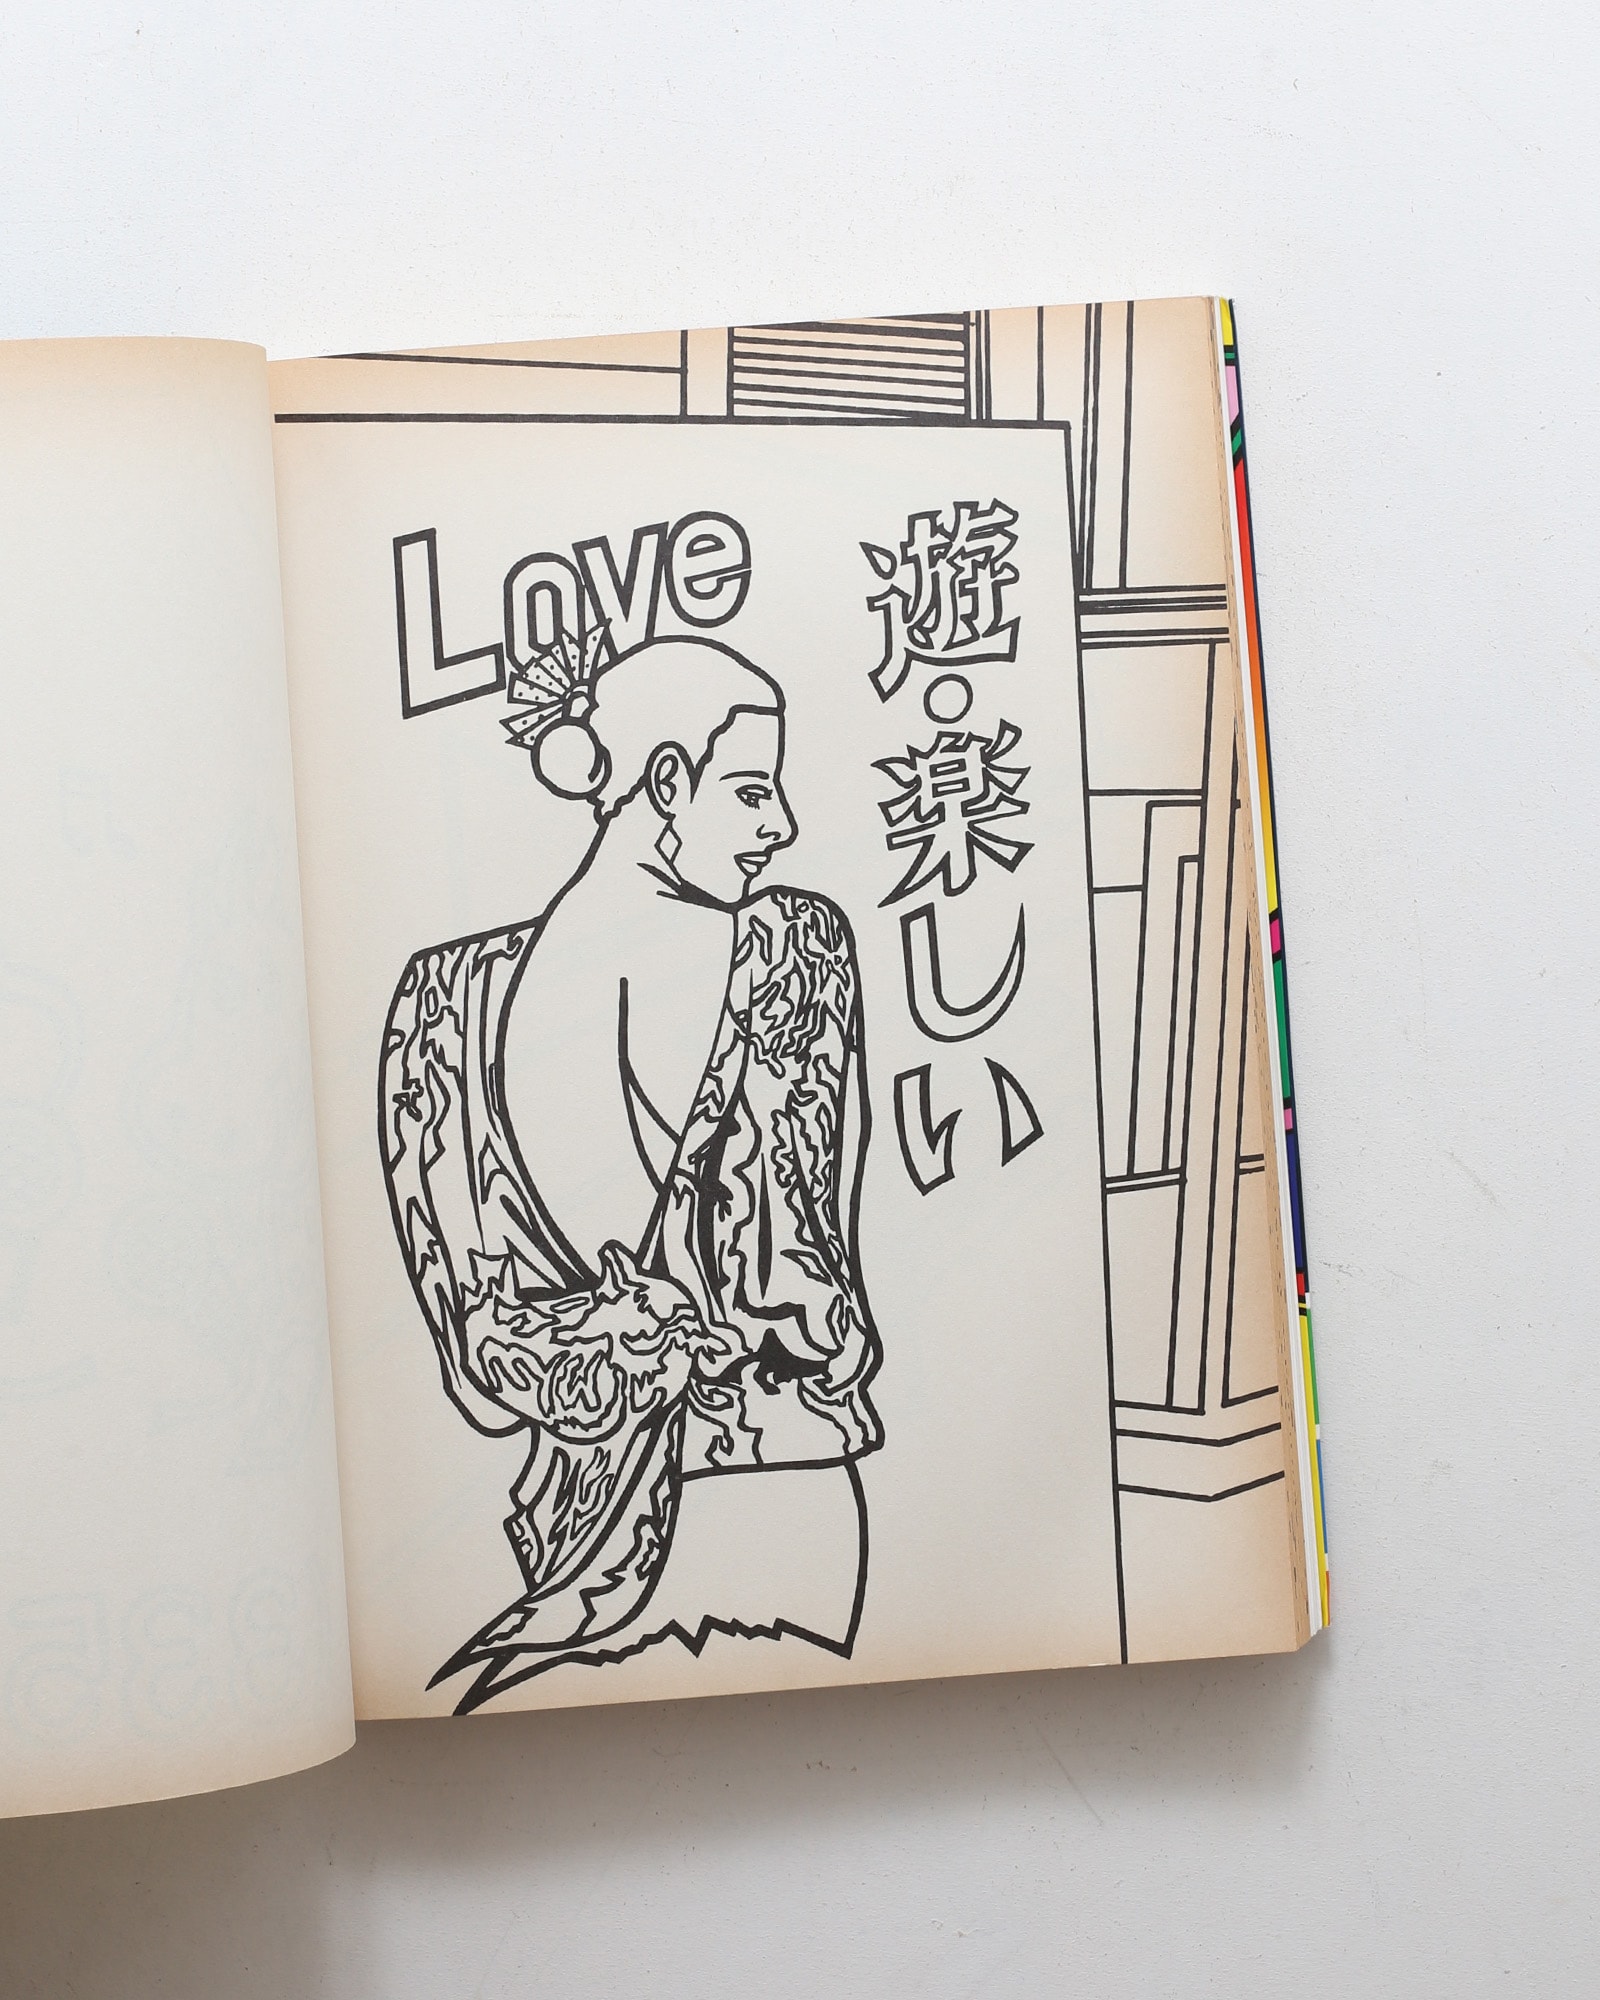 Love
遊・楽しい